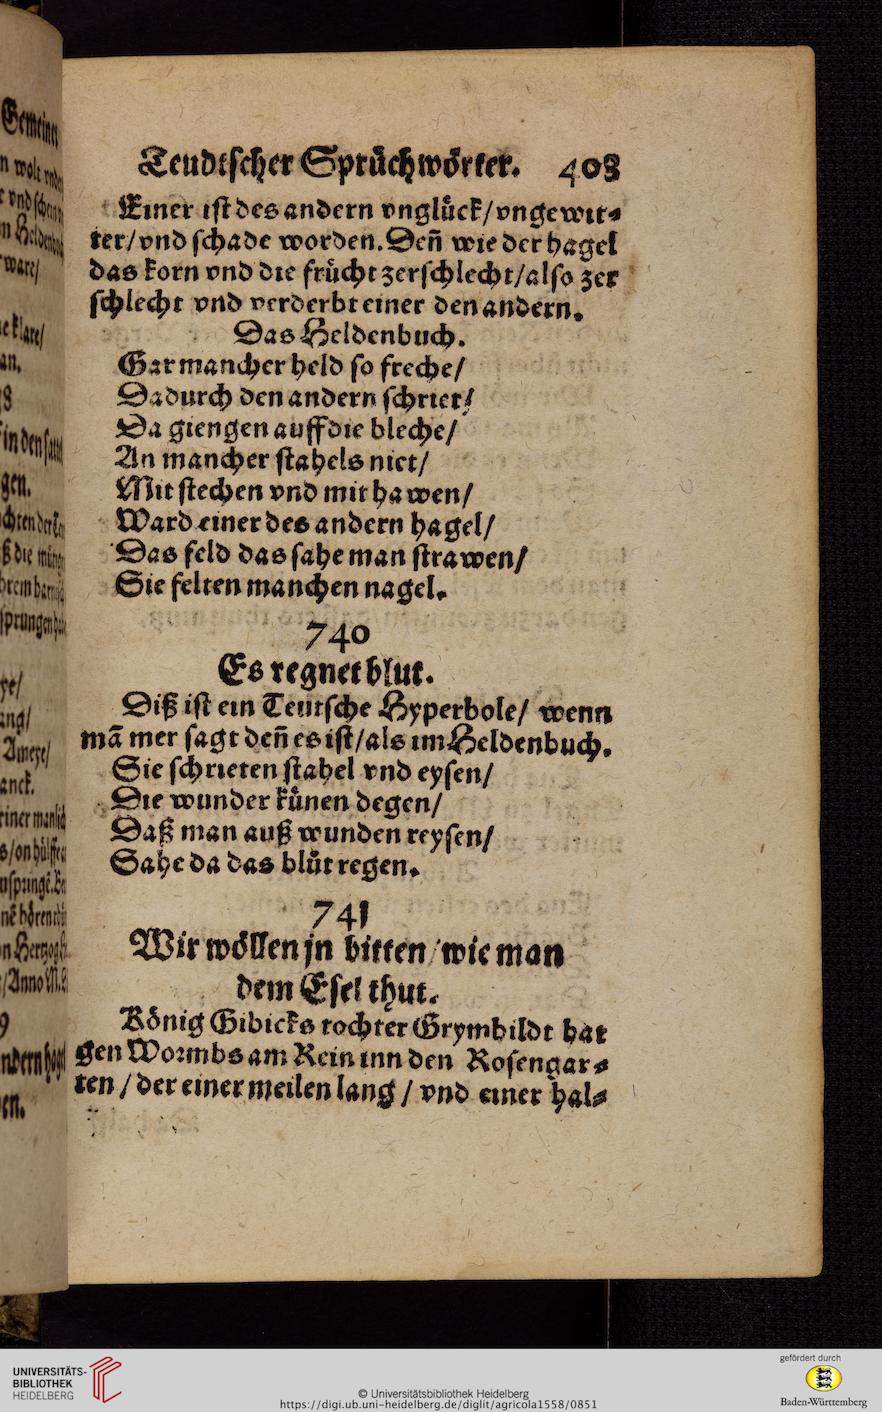 Teudtscher Sprüchwörter. 408
Einer ist des andern vnglück/vngewit⸗
ter/vnd schade worden. Deñ wie der hagel
das korn vnd die frücht zerschlecht/also zer
schlecht vnd verderbt einer den andern.
Das Heldenbuch.
Gar mancher held so freche/
Dadurch den andern schriet/
Da giengen auff die bleche/
An mancher stahels niet/
Mit stechen vnd mit hawen/
Ward einer des andern hagel/
Das feld das sahe man strawen/
Sie felten manchen nagel.
740
Es regnet blut.
Diß ist ein Teutsche Hyperbole/ wenn
mã mer sagt deñ es ist/als im Heldenbuch.
Sie schrieten stahel vnd eysen/
Die wunder künen degen/
Daß man auß wunden reysen/
Sahe da das blůt regen.
741
Wir wöllen jn bitten/wie man
dem Esel thut.
König Gibicks tochter Grymhildt hat
gen Wormbs am Rein inn den Rosengar⸗
ten/der einer meilen lang/vnd einer hal⸗
UNIVERSITÄTS-
BIBLIOTHEK
HEIDELBERG
© Universitätsbibliothek Heidelberg
https://digi.ub.uni-heidelberg.de/diglit/agricola1558/0851
gefördert durch
Baden-Württemberg